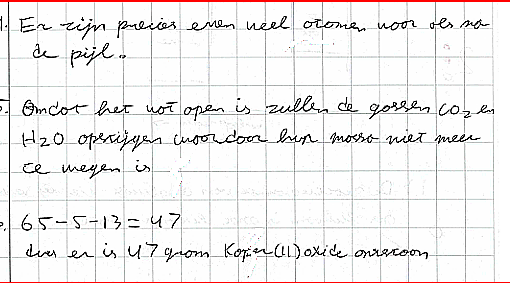 4. Er zijn precies even veel atomen voor als na
de pijl.
5. Omdat het vat open is zullen de gassen CO2 en
H2O opstijgen waardoor hun massa niet meer
te wegen is
6. 65-5-13=47
dus er is 47 gram Koper(II)oxide ontstaan